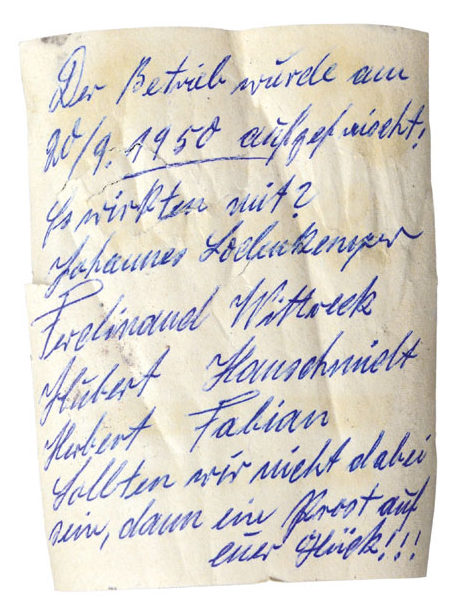 Der Betrieb wurde am
20/9. 1950 aufgefrischt!
Es wirkten mit?
Johannes
Ferdinand Wittreck
Hubert Hanschmidt
Herbert Fabian
Sollten wir nicht dabei
sein, dann ein Prost auf
euer Glück!!!